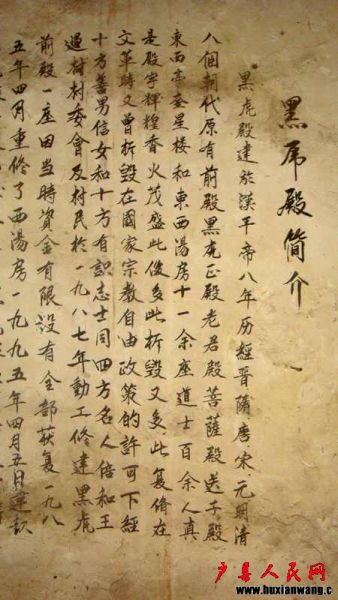 黑虎殿簡介
黑虎殿建於漢平帝八年历經晉隋唐、宋、元明清
八個朝代原有前殿黑虎正殿老君殿菩薩殿送子殿
東西亭奎星楼和東西湯房十一余座道士百余人真
是殿宇輝煌香火茂盛此後多此折毁又多此复脩在
文革時又曾折毁在國家宗教自由政策的許可下經
十方善男信女和十方有識志士同四方名人倍和王
過村村委會及村民於一九八七年動工修建黑虎
前殿一座因當時資金有限没有全部获复一九八
五年四月重修了西湯房一九九五年四月五日
户县人民网
www.huxianwang.c